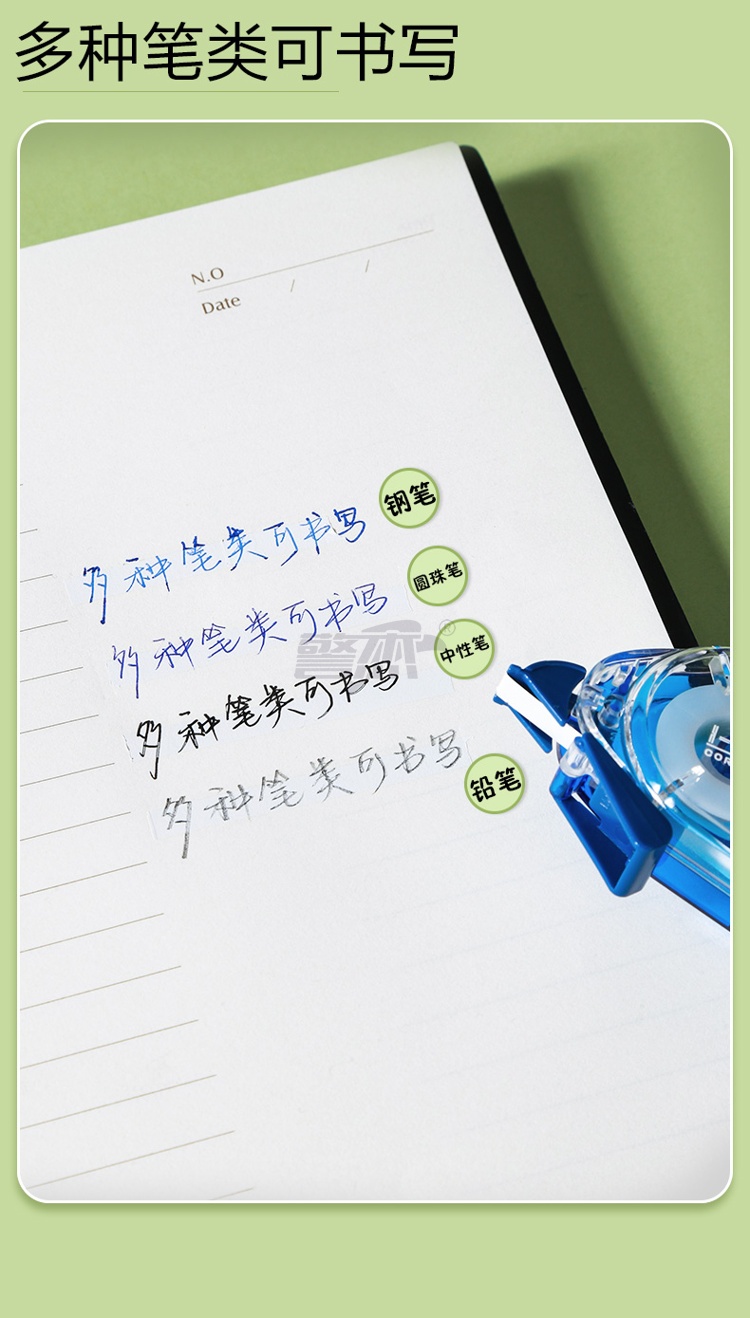 多种笔类可书写
N.O
Date / /
多种笔类可书写 钢笔
多种笔类可书写 圆珠笔
多种笔类可书写 中性笔
多种笔类可书写 铅笔